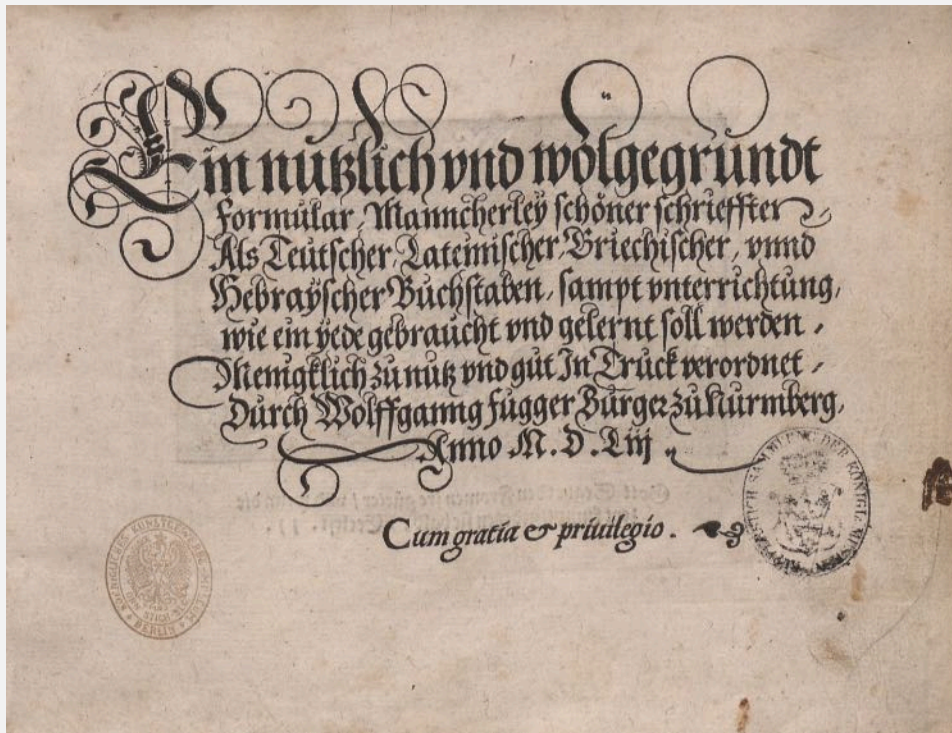 Ein nützlich vnd wolgegründt
Formular, Manncherleÿ schöner schriefften,
Als Teutscher, Lateinischer, Griechischer, vnnd
Hebraÿscher Buchstaben, sampt vnterrichtung,
wie ein ÿede gebraucht vnd gelernt soll werden,
Menigklich zu nutz vnd gut In Truck verordnet,
Durch Wolffganng Fugger Burger zu Nurmberg,
Anno M.D.Liij
Cum gratia & priuilegio.
BERLIN